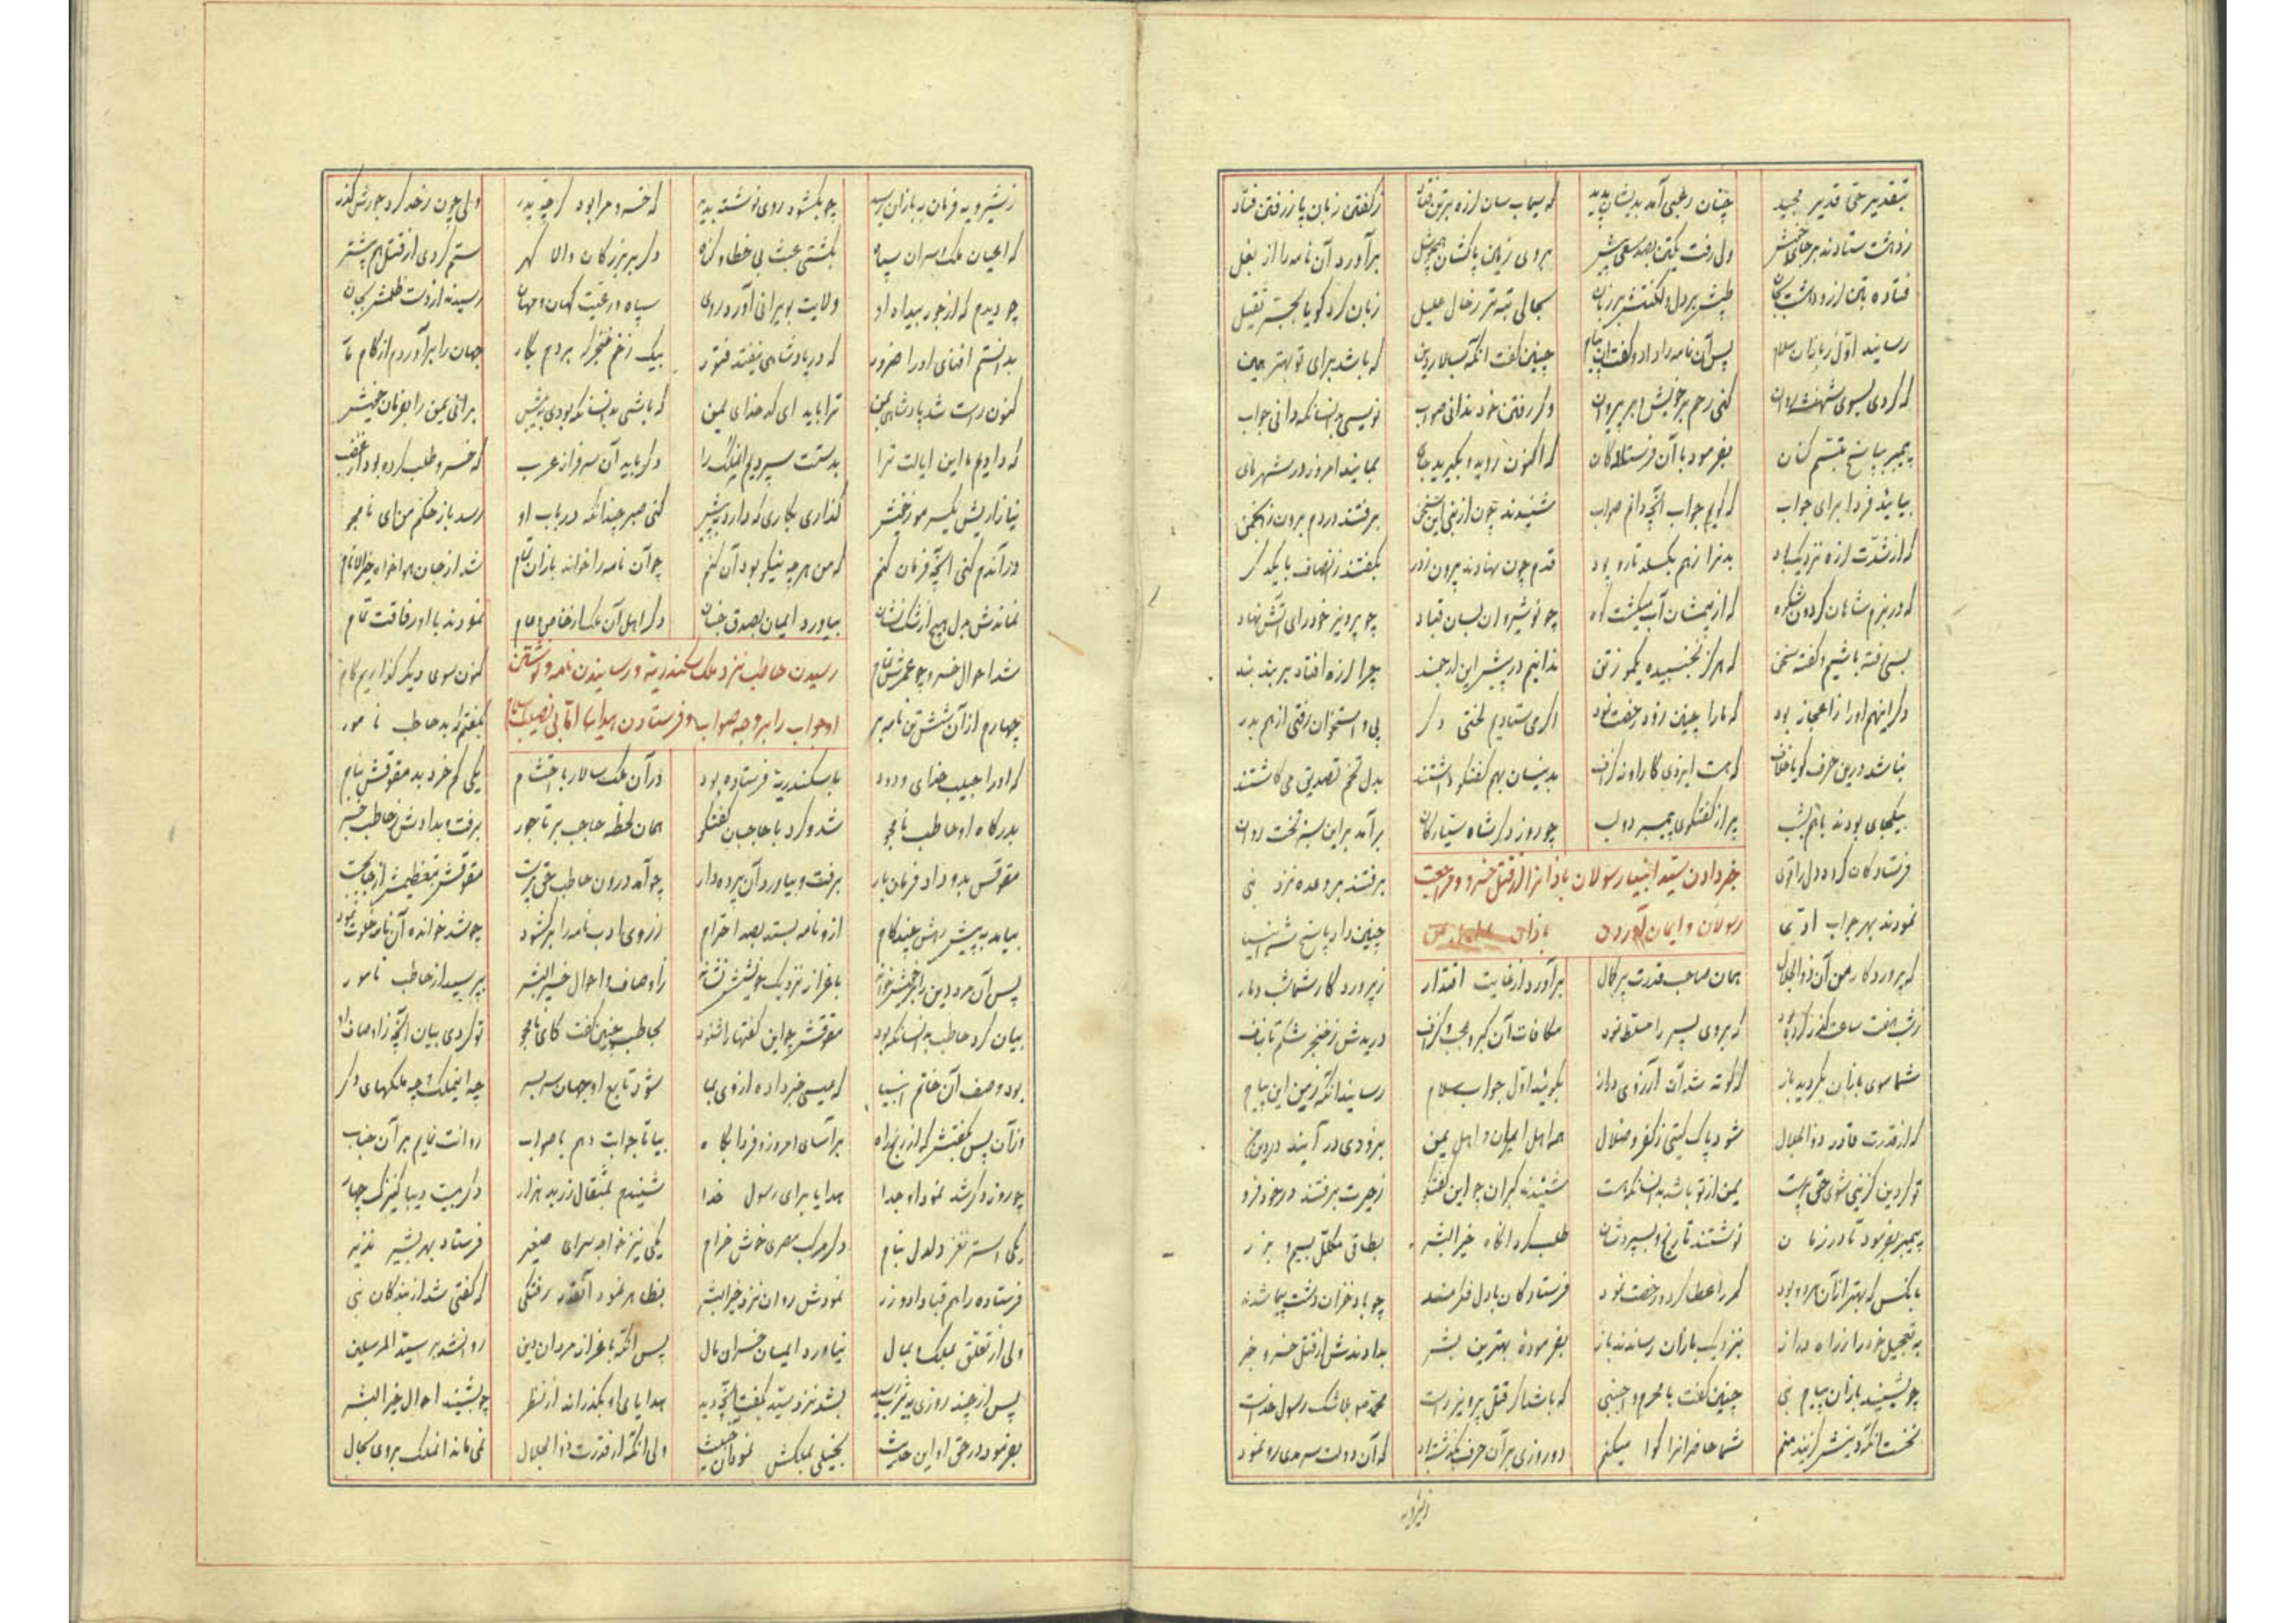 بتقدیر حق قدیر مجید چنان رعبی آمد بدیشان پدید که سیماب سان لرزه بر تن فتاد ز گفتن زبان پا ز رفتن فتاد
ز دهشت ستادند بر جای خویش ولی رفت یکتن بصد سعی پیش بروی زمین پا کشان برآورد آن نامه را از بغل
فتاده بتن لرزه دهشت بجان طپش بر دل و لکنتش بر زبان بحالی تبه تر ز حال علیل زبان کرد گویا بجبر ثقیل
رسانید اول ز باذان سلام پس آن نامه را داد و گفت آن پیام چنین گفت آنگه بسالار دین که باشد برای تو بهتر همین
که گردی بسوی شهنشه روان کنی رحم بر خویش و بر پیروان وگر رفتن خود ندانی صواب نویسی بدانسانکه دانی جواب
پیمبر بپاسخ تبسم کنان بفرمود با آن فرستادگان که اکنون روید و بگیرید جای بمانید امروز در شهر ما
بیائید فردا برای جواب که گویم جواب آنچه دانم صواب شنیدند چون از نبی این سخن برفتند در دم برون ز انجمن
که از شدت لرزه نزدیک بود بدنرا ز هم بگسلد تار و پود قدم چون نهادند بیرون ز در بگفتند ز انصاف با یکدگر
که در بزم شاهان گردون شکوه که از بیمشان آب میگشت کوه چو نوشیروان بسان قباد چو پرویز خودرای آتش نهاد
بسی رفته باشیم و گفته سخن که هرگز نجنبیده یکمو ز تن ندانیم در پیش این ارجمند چرا لرزه افتاد بر بند بند
دگر اینهم او را ز اعجاز بود که ما را چنین زود رخصت نمود اگر می ستادیم لختی دگر پی و استخوان رفتی از هم بدر
نباشد درین حرف گویا خلاف که هست ایزدی کار او نه گزاف بدینسان بهم گفتگو داشتند بدل تخم تصدیق می کاشتند
بیکجای بودند با هم بشب پر از گفتگوی پیمبر دو لب چو روز دگر شاه سیارگان برآمد براین سبز تخت روان
خبر دادن سید انبیا رسولان باذان را از قتل خسرو و مراجعت
رسولان و ایمان آوردن باذان
فرستادگان کرده دل را قوی برفتند بر وعده نزد نبی
نمودند بهر جواب چنین داد پاسخ شه انبیا
که پروردگار من آن ذوالجلال همان صاحب قدرت پر کمال برآورد از غایت اقتدار ز پرورد گار شما شب دمار
که بروی پسر را مسلط نمود مکافات آن کبر و عجب و گزاف دریدش ز خنجر شکم تا بناف
شما سوی باذان بگردید باز که کوته شد آن آرزوی دراز بگوئید اول جواب سلام رسانید آنگه ز من این پیام
که از قدرت قادر ذوالجلال شود پاک گیتی ز کفر و ضلال همه اهل ایران و اهل یمن بزودی در آیند در دین من
تو گر دین گزینی شوی حق پرست یمن از تو باشد بدانسانکه هست شنیدند گبران چو این گفتگو ز حیرت برفتند در خود فرو
پیمبر بفرمود تا در زمان نوشتند تاریخ و بسپردشان طلب کرد آنگاه خیر البشر نطاق مکلل بسیم و بزر
بآنکس که بهتر از آن هر دو بود کمر را عطا کرد و رخصت نمود فرستادگان با دل فکرمند چو باد خزان دشت پیما شدند
به تعجیل خود را ز راه دراز بنزدیک باذان رساندند باز بفرموده بهترین بشر بدادندش از قتل خسرو خبر
چو بشنید باذان پیام نبی چنین گفت با محرم و اجنبی که باشد گر قتل پرویز راست محمد بلا شک رسول خداست
نخست آنکه دینش گزیند منم شما حاضرانرا گوا میکنم دو روزی بر آن حرف بگذشته بود که آن دولت سرمدی رو نمود
ز شیرویه
ز شیرویه فرمان بباذان رسید چو بگشود روی نوشته بدید که خسرو مرا بود گرچه پدر ولی چون ز حد کرد جورش گذر
که اعیان ملک و سران سپاه بکشتی عبث بی خطا و گناه دگر بر بزرگان والا گهر ستم کردی از قتل هم بیشتر
چو دیدم که از جور بیداد او ولایت بویرانی آورد روی سپاه و رعیت کهان و مهان رسیدند از دست ظلمش بجان
بدانستم افنای او را ضرور که در پادشاهی نیفتد فتور بیک زخم خنجر که بردم بکار جهان را برآوردم از کام
کنون راست شد پادشاهی بمن ترا باید ای کدخدای یمن که باشی بدانسانکه بودی به پیش برانی یمن را بفرمان خویش
که دادیم ما این ایالت ترا بدستت سپردیم این ملک را دگر باید آن سرفراز عرب که خسرو طلب کرده بود از غضب
نیازاریش یکسر مو ز خشم گذاری بکاری که دارد به پیش کنی صبر چندانکه در باب او رسد باز حکم من ای نامجو
در آندم کنی آنچه فرمان کنم که من هر چه نیکو بود آن کنم چو آن نامه را خواند باذان تمام شد از جان هواخواه خیرالانام
نماندش بدل هیچ از شک نشان بیاورد ایمان بصدق جنان دگر اهل آن ملک از خاص و عام نمودند با او رفاقت تمام
رسیدن حاطب نزد ملک اسکندریه و رسانیدن نامه و نوشتن
او جواب را بر وجه صواب و فرستادن هدایا
شد احوال خسرو چو عمرش تمام کنون سوی دیگر گذاریم گام
چهارم از آن شش تن نامه بر بگفتم که بد حاطب نامور
که او را حبیب خدای ودود باسکندریه فرستاده بود در آن ملک سالار با احتشام یکی گم خرد بد مقوقس بنام
بدرگاه او حاطب نامجو شد و کرد با حاجبان گفتگو همان لحظه حاجب بر تاجور برفت و بدادش ز حاطب خبر
مقوقس بدو داد فرمان بار برفت و بیاورد آن پرده دار چو آمد درون حاطب حق پرست مقوقس بتعظیمش از جای جست
بیامد به پیش رهش چند گام ازو نامه بستد بصد احترام ز روی ادب نامه را برگشود چو شد خوانده آن نامه خلوت نمود
پس آن مرد دین را بر خویش خواند باعزاز نزدیک خویشش نشاند ز اوصاف و احوال خیرالبشر بپرسید از حاطب نامور
بیان کرد حاطب بدانسانکه بود مقوقس چو این گفتها را شنود بحاطب چنین گفت کای نامجو تو کردی بیان آنچه ز اوصاف او
بود وصف آن خاتم انبیا که عیسی خبر داده از وی بما شود تابع او جهان سربسر چه این ملک و چه ملکهای دگر
وز آن پس بگفتش که از رنج راه برآسای امروز و فردا پگاه بیا تا جوابت دهم با صواب روانت نمایم بر آن جناب
چو روز دگر شد نمود او جدا هدایا برای رسول خدا شنیدم بمثقال زر بد هزار دگر بیست دیبا کنیزک چهار
یکی استر نغز دلدل بنام دگر مرکب مصری خوش خرام یکی نیز خواجه سرای صغیر فرستاد بهر بشیر نذیر
فرستاده را هم قبا داد و زر نمودش روان نزد خیرالبشر بظاهر نمود آنقدر رفتگی که گفتی شد از بندگان نبی
ولی از تعلق بملک و بمال نیاورد ایمان خسران مآل پس آنگه باعزاز مردان دین روانشد بر سید المرسلین
پس از چند روزی به یثرب رسید بشد نزد سید بگفت آنچه دید هدایای او بگذراند از نظر چو بشنید احوال خیرالبشر
بفرمود در حق او این حدیث بخیلی بملکش نمود آن خبیث ولی آنکه از قدرت ذوالجلال نمی ماند آن ملک بروی بحال